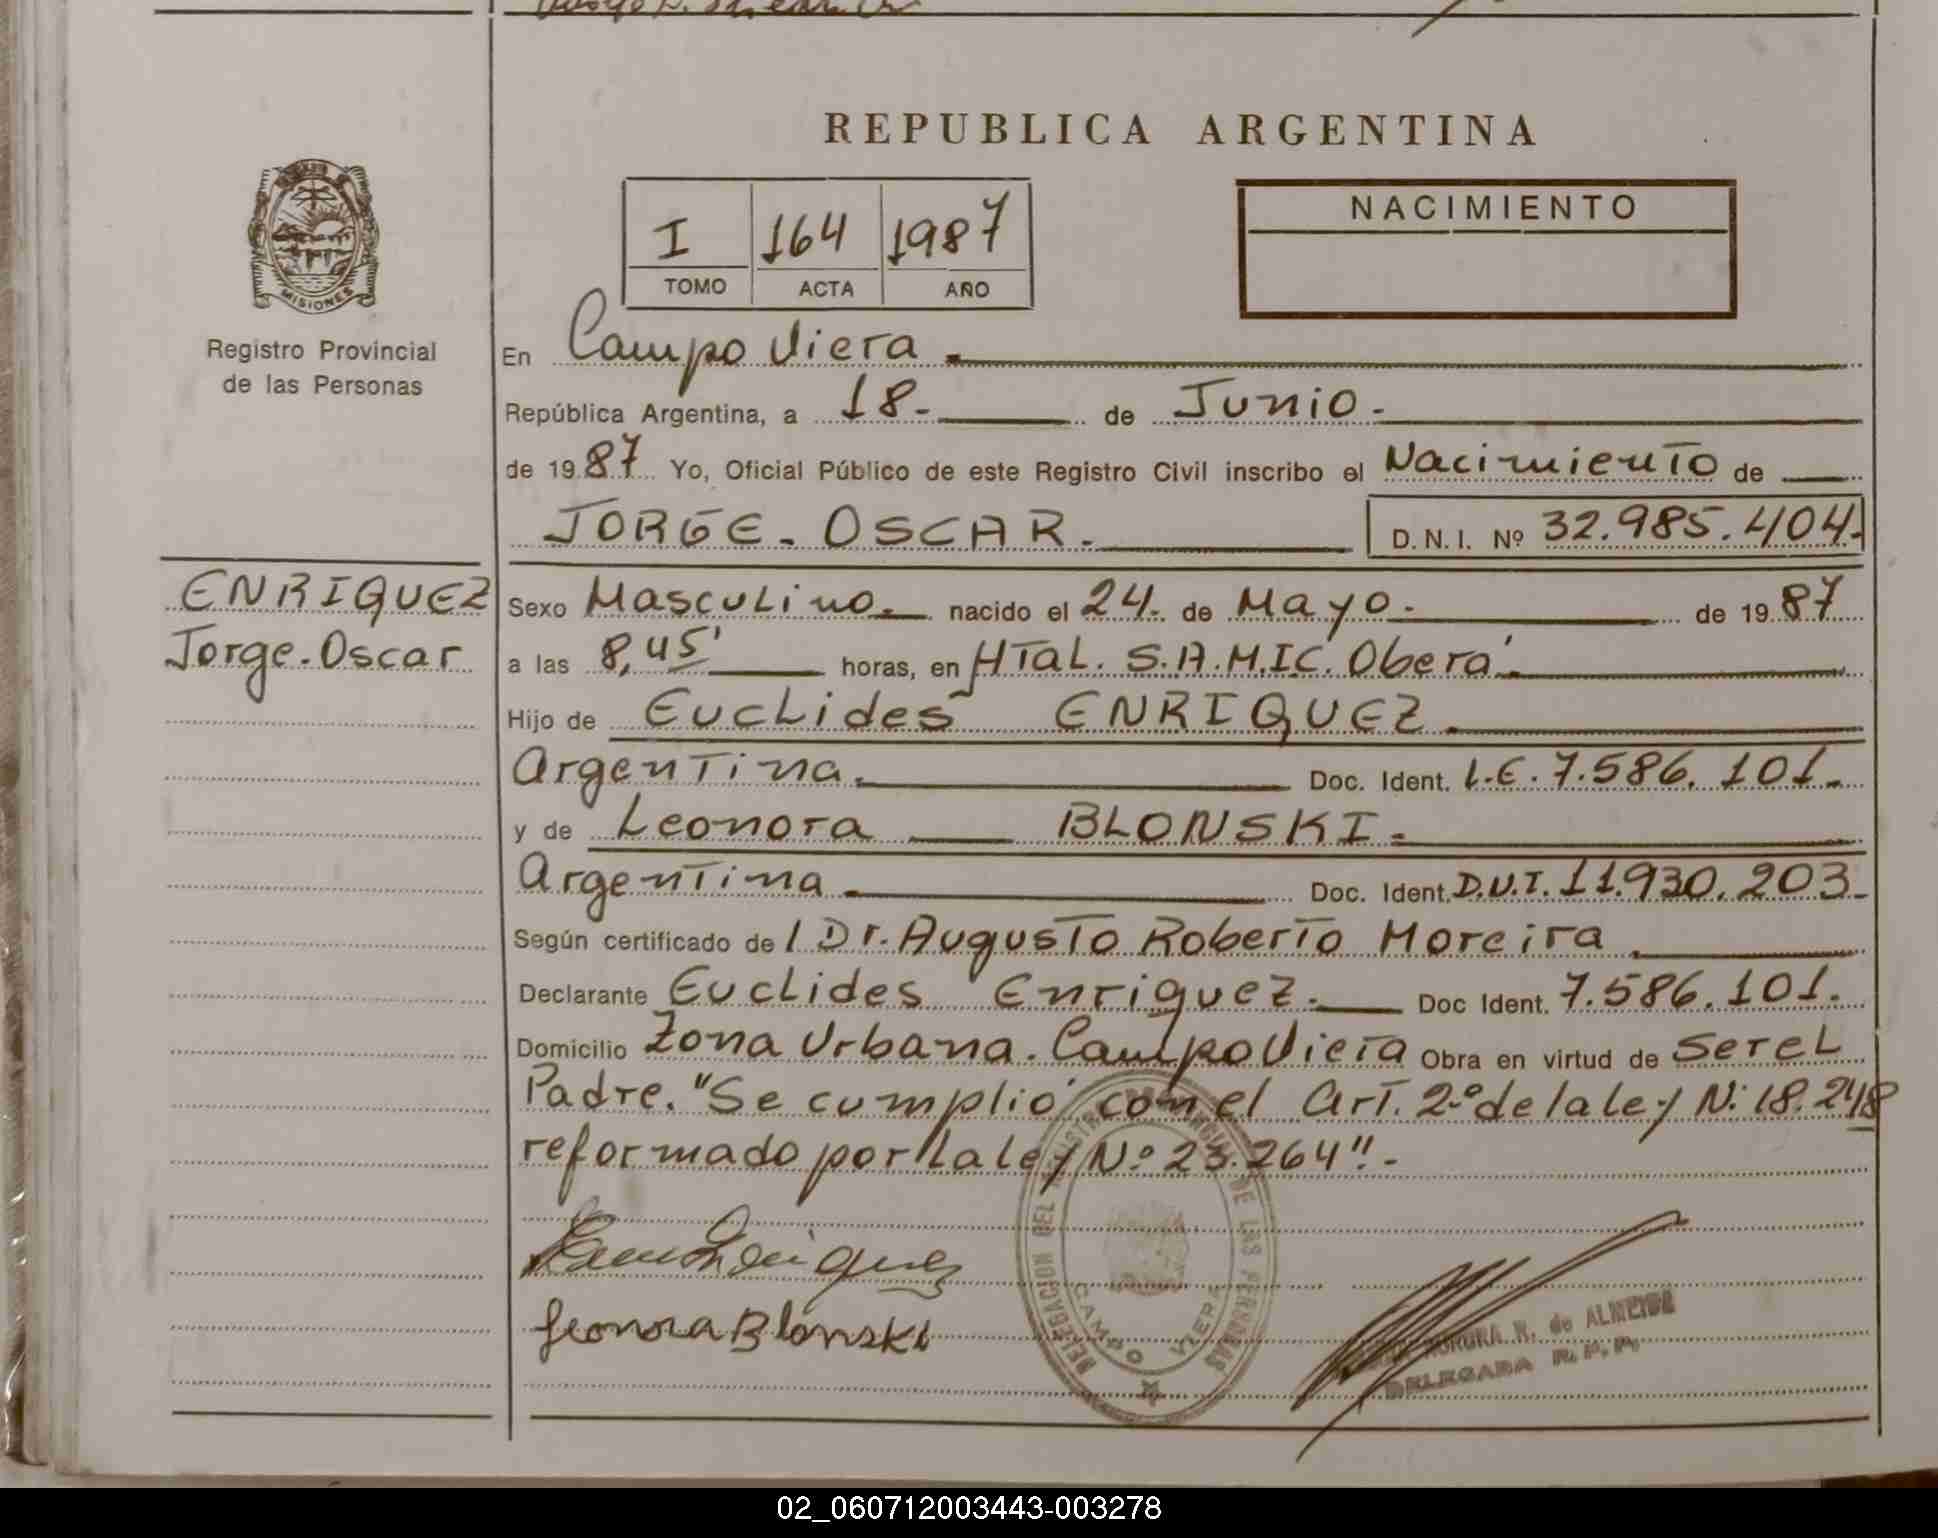 REPUBLICA ARGENTINA
I 164 1987
TOMO ACTA AÑO
NACIMIENTO
MISIONES
Registro Provincial
de las Personas
En Campo Viera
República Argentina, a 18- de Junio.
de 1987 Yo, Oficial Público de este Registro Civil inscribo el Nacimiento de
JORGE-OSCAR. D.N.I. Nº 32.985.404.
ENRIQUEZ
Jorge-Oscar
Sexo Masculino. nacido el 24. de Mayo. de 1987
a las 8,45' horas, en HTaL. S.A.M.IC. Oberá.
Hijo de Euclides ENRIQUEZ.
Argentina. Doc. Ident. L.E. 7.586.101.
y de Leonora BLONSKI.
Argentina. Doc. Ident. D.U.I. 11.930.203-
Según certificado de l Dr. Augusto Roberto Moreira
Declarante Euclides Enriquez. Doc Ident. 7.586.101.
Domicilio Zona Urbana. Campo Viera Obra en virtud de Ser el
Padre. "Se cumplió con el Art. 2º de la ley N: 18.248
reformado por la ley Nº 23.264".-
Leonora Blonski
DELEGACION DEL REGISTRO DE LAS PERSONAS
CAMPO VIERA
AURORA N. de ALMEIDA
DELEGADA R.P.P.
02_060712003443-003278